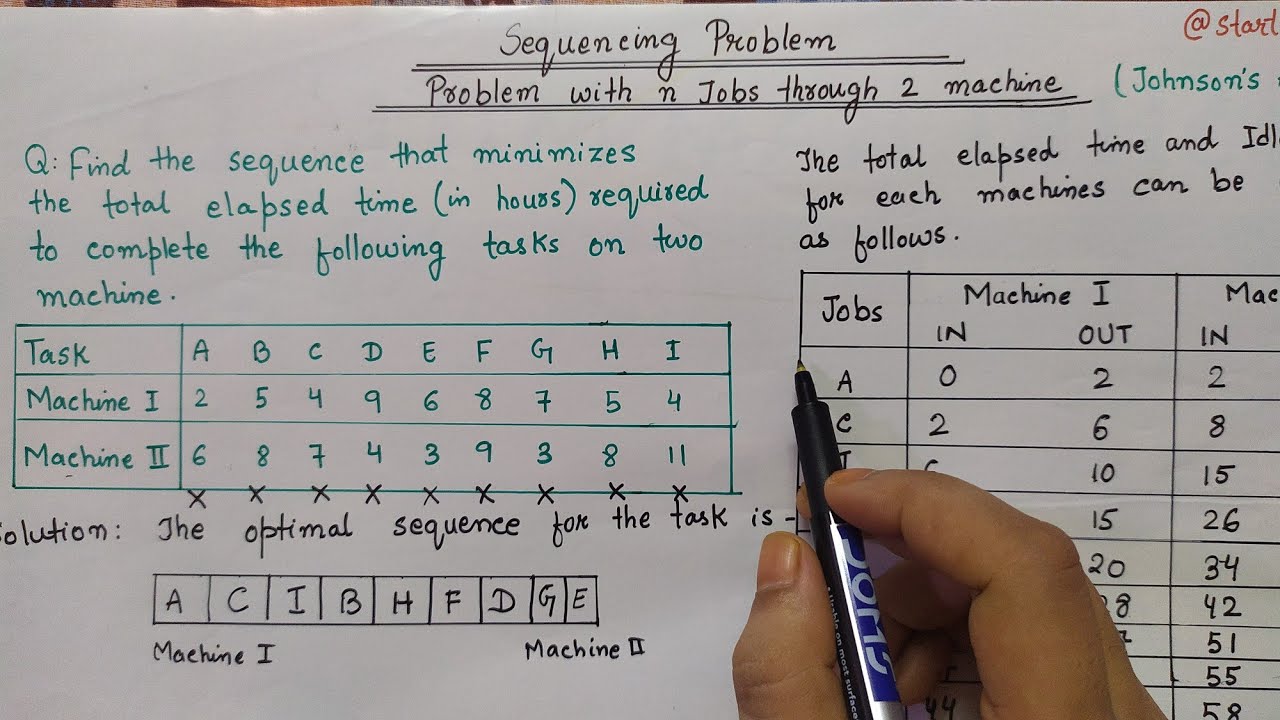 @start
Sequencing Problem
Problem with n Jobs through 2 machine (Johnson's
Q: Find the sequence that minimizes
the total elapsed time (in hours) required
to complete the following tasks on two
machine.
Task A B C D E F G H I
Machine I 2 5 4 9 6 8 7 5 4
Machine II 6 8 7 4 3 9 3 8 11
x x x x x x x x x
olution: The optimal sequence for the task is -
A C I B H F D G E
Machine I Machine II
The total elapsed time and Idl
for each machines can be
as follows.
Jobs Machine I Mac
IN OUT IN
A 0 2 2
C 2 6 8
10 15
15 26
20 34
42
51
55
44 58
DOMS